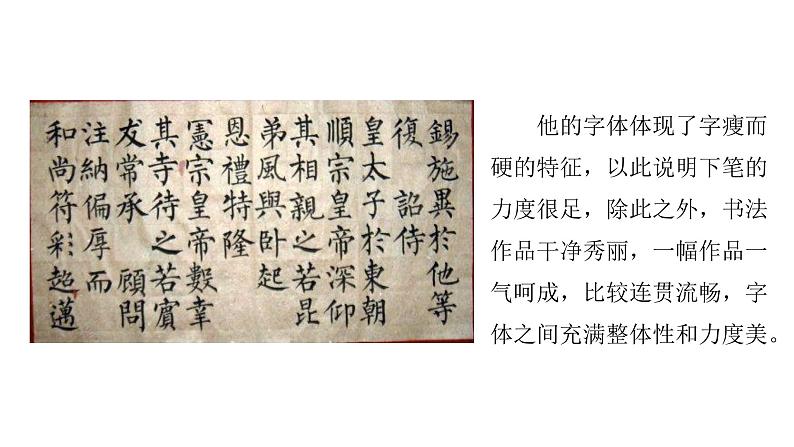 錫施異於他等
復 詔侍
皇太子於東朝
順宗皇帝深仰
其相親之若昆
弟風與卧起
恩禮特隆
憲宗皇帝數幸
其寺待之若賓
友常承 顧問
注納偏厚而
和尚符彩超邁
他的字体体现了字瘦而
硬的特征，以此说明下笔的
力度很足，除此之外，书法
作品干净秀丽，一幅作品一
气呵成，比较连贯流畅，字
体之间充满整体性和力度美。